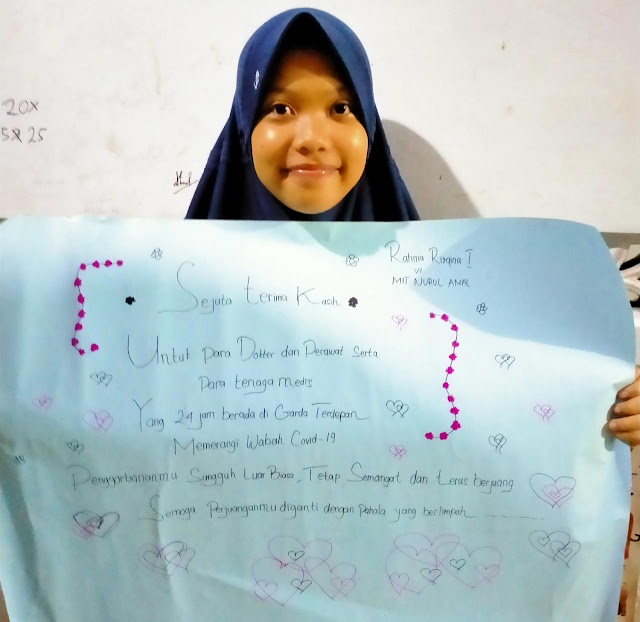 20x
5x25
Rahma Ruqina I
VI
MIT NURUL AMAL
Sejuta terima Kasih
Untuk Para Dokter dan Perawat Serta
Para tenaga medis
Yang 24 jam berada di Garda Terdepan
Memerangi Wabah Covid-19
Pengorbananmu Sungguh Luar Biasa, Tetap Semangat dan terus berjuang
Semoga Perjuanganmu diganti dengan Pahala yang berlimpah